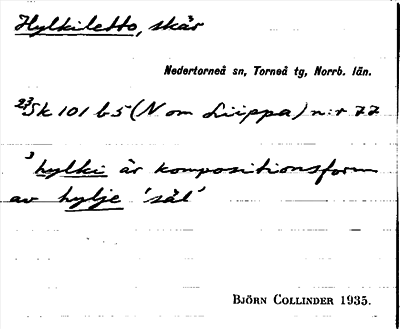 Hylkiletto, skär
Nedertorneå sn, Torneå tg, Norrb. län.
Sk 101 b 5 (N om Liippa) n:r 77
hylki är kompositionsform
av hylje 'säl'
BJÖRN COLLINDER 1935.